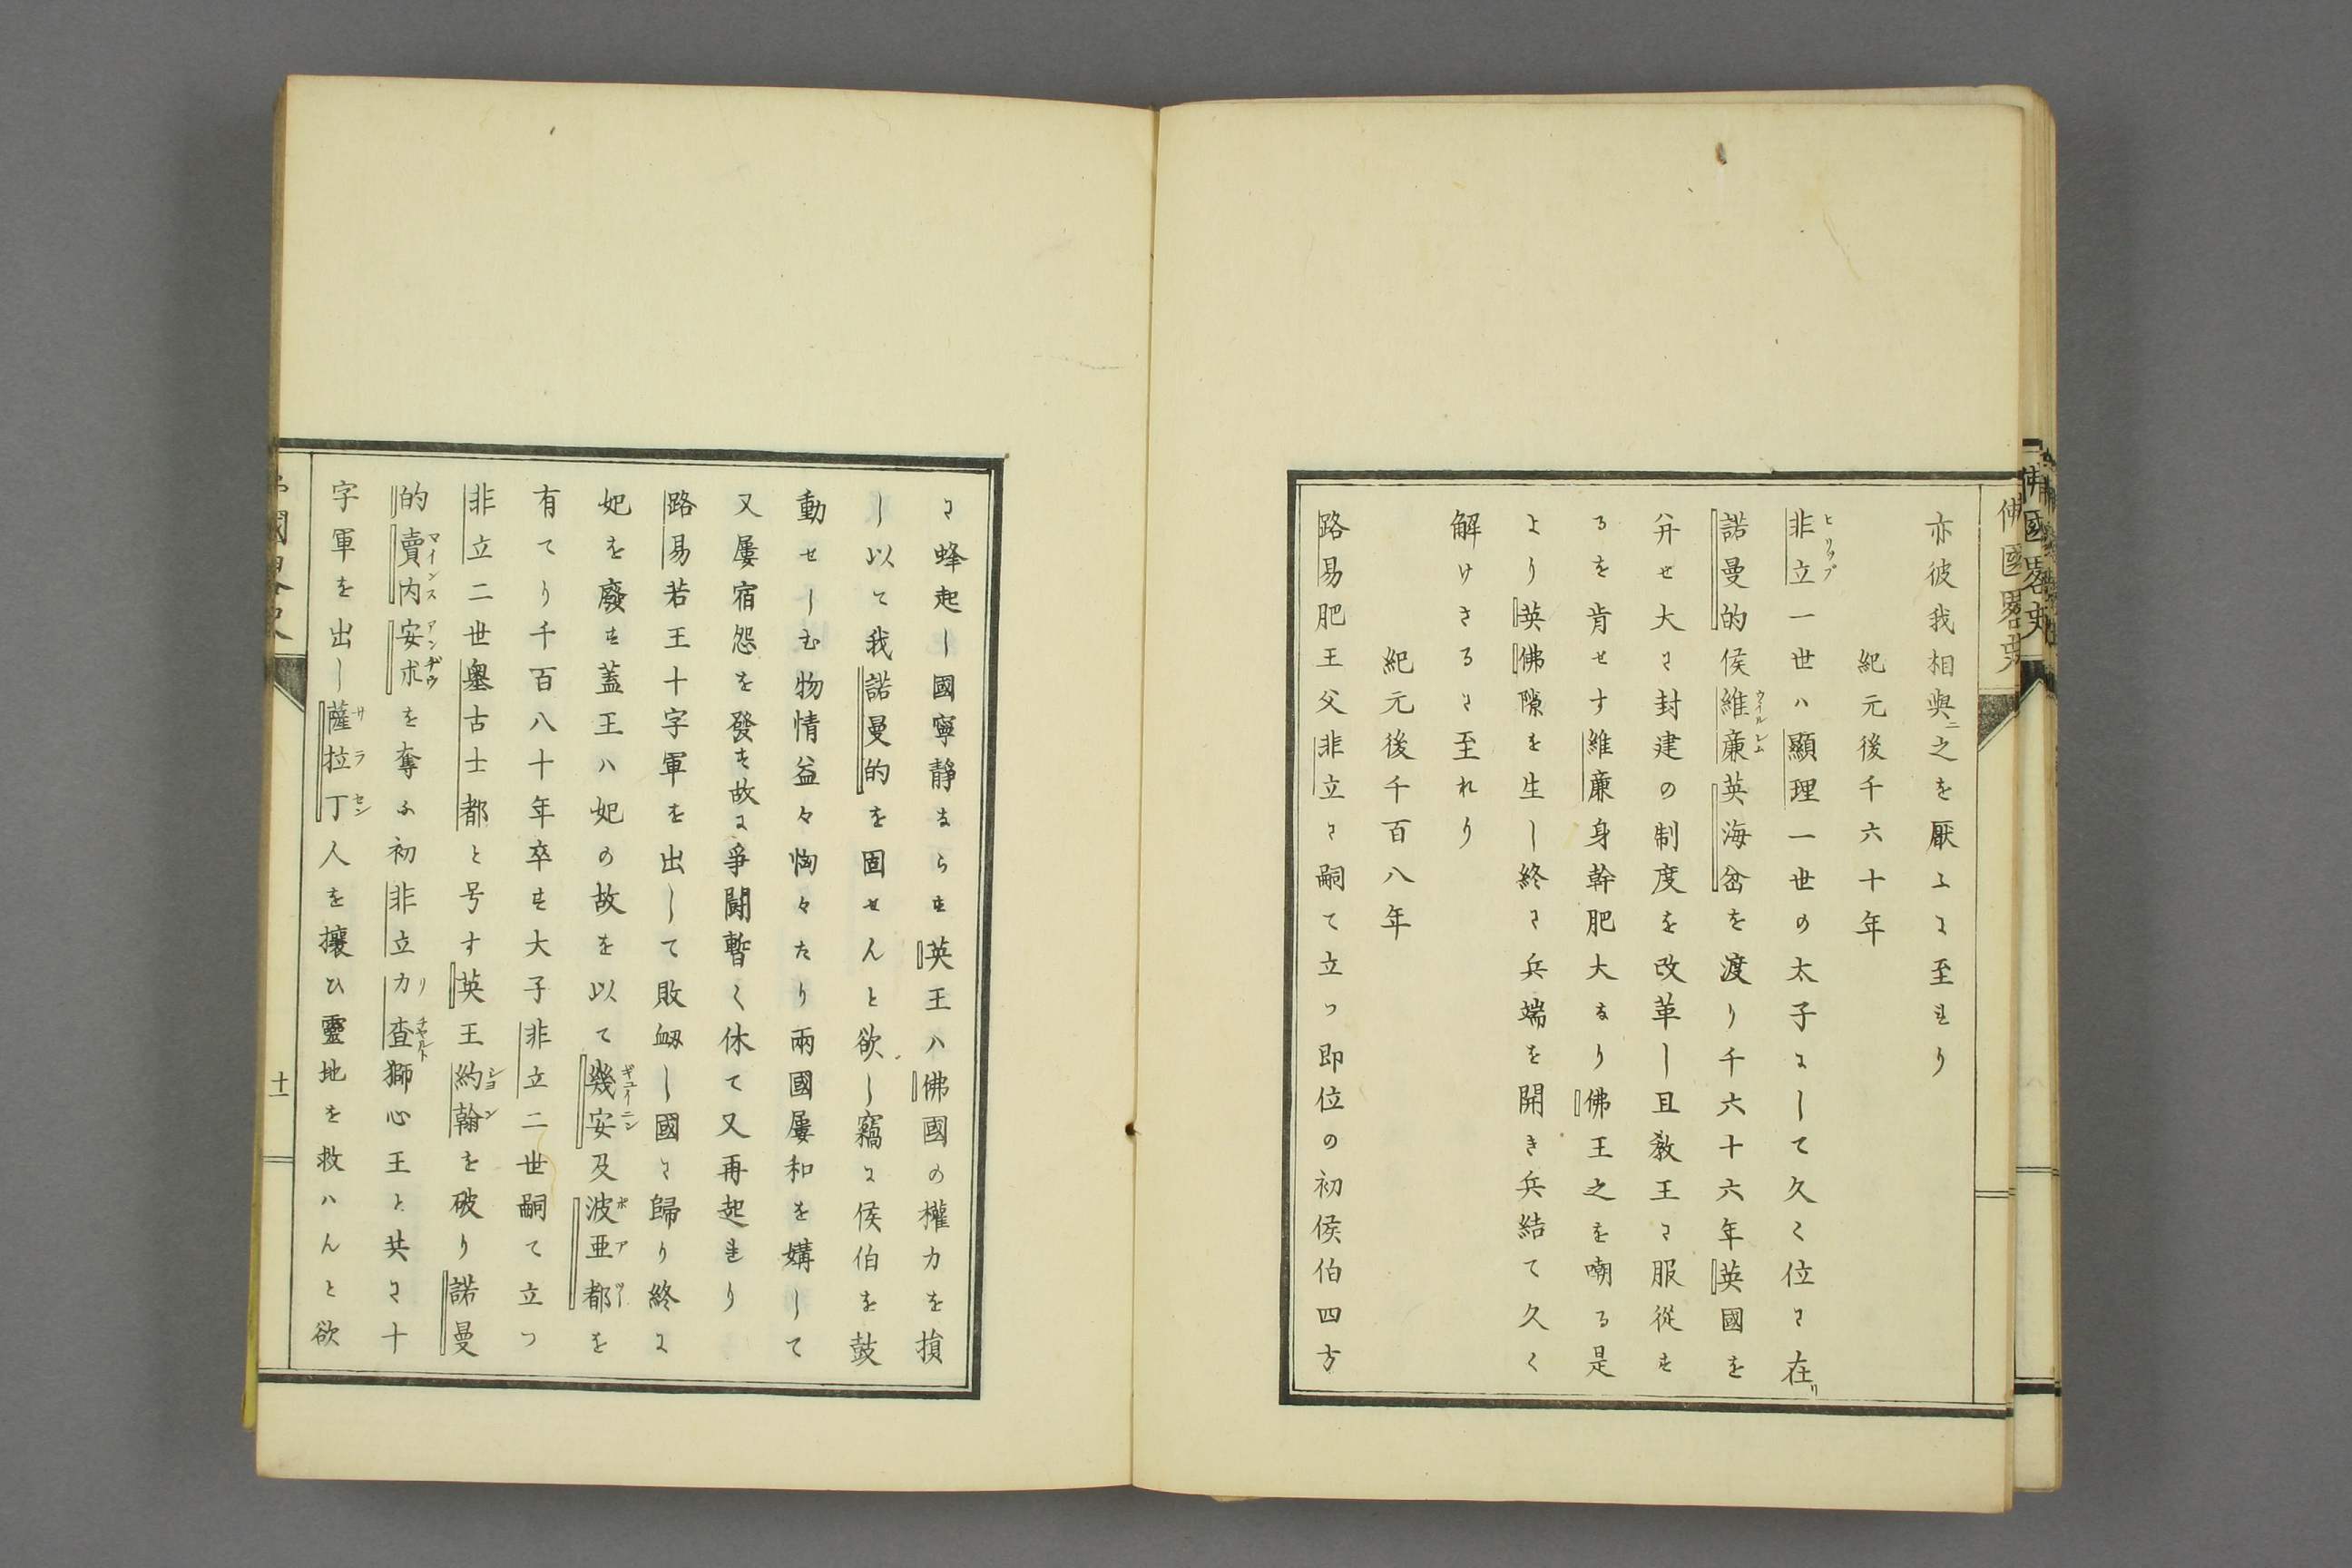 佛國畧史
亦彼我相與ニ之を厭ふに至れり
紀元後千六十年
非立一世ハ顯理一世の太子にして久く位に在リ
ヒリップ
諾曼的侯維廉英海峹を渡り千六十六年英國を
ウイルレム
幷せ大に封建の制度を改革し且敎王に服從せ
るを肯せす維廉身幹肥大なり佛王之を嘲る是
より英佛隙を生し終に兵端を開き兵結て久く
解けさるに至れり
紀元後千百八年
路易肥王父非立に嗣て立つ即位の初侯伯四方
に蜂起し國寧静ならす英王ハ佛國の權力を損
し以て我諾曼的を固せんと欲し竊に侯伯を鼓
動せしむ物情益々恟々たり兩國屢和を媾して
又屢宿怨を發す故に爭鬪暫く休て又再起れり
路易若王十字軍を出して敗衂し國に歸り終に
妃を廢す蓋王ハ妃の故を以て幾安及波亜都を
ギユイニン
ポアツー
有てり千百八十年卒す大子非立二世嗣て立つ
非立二世奥古士都と号す英王約翰を破り諾曼
ジヨン
的賣内安求を奪ふ初非立力査獅心王と共に十
マインス
アンヂウ
リチヤルト
字軍を出し薩拉丁人を攘ひ靈地を救ハんと欲
サラセン
十一